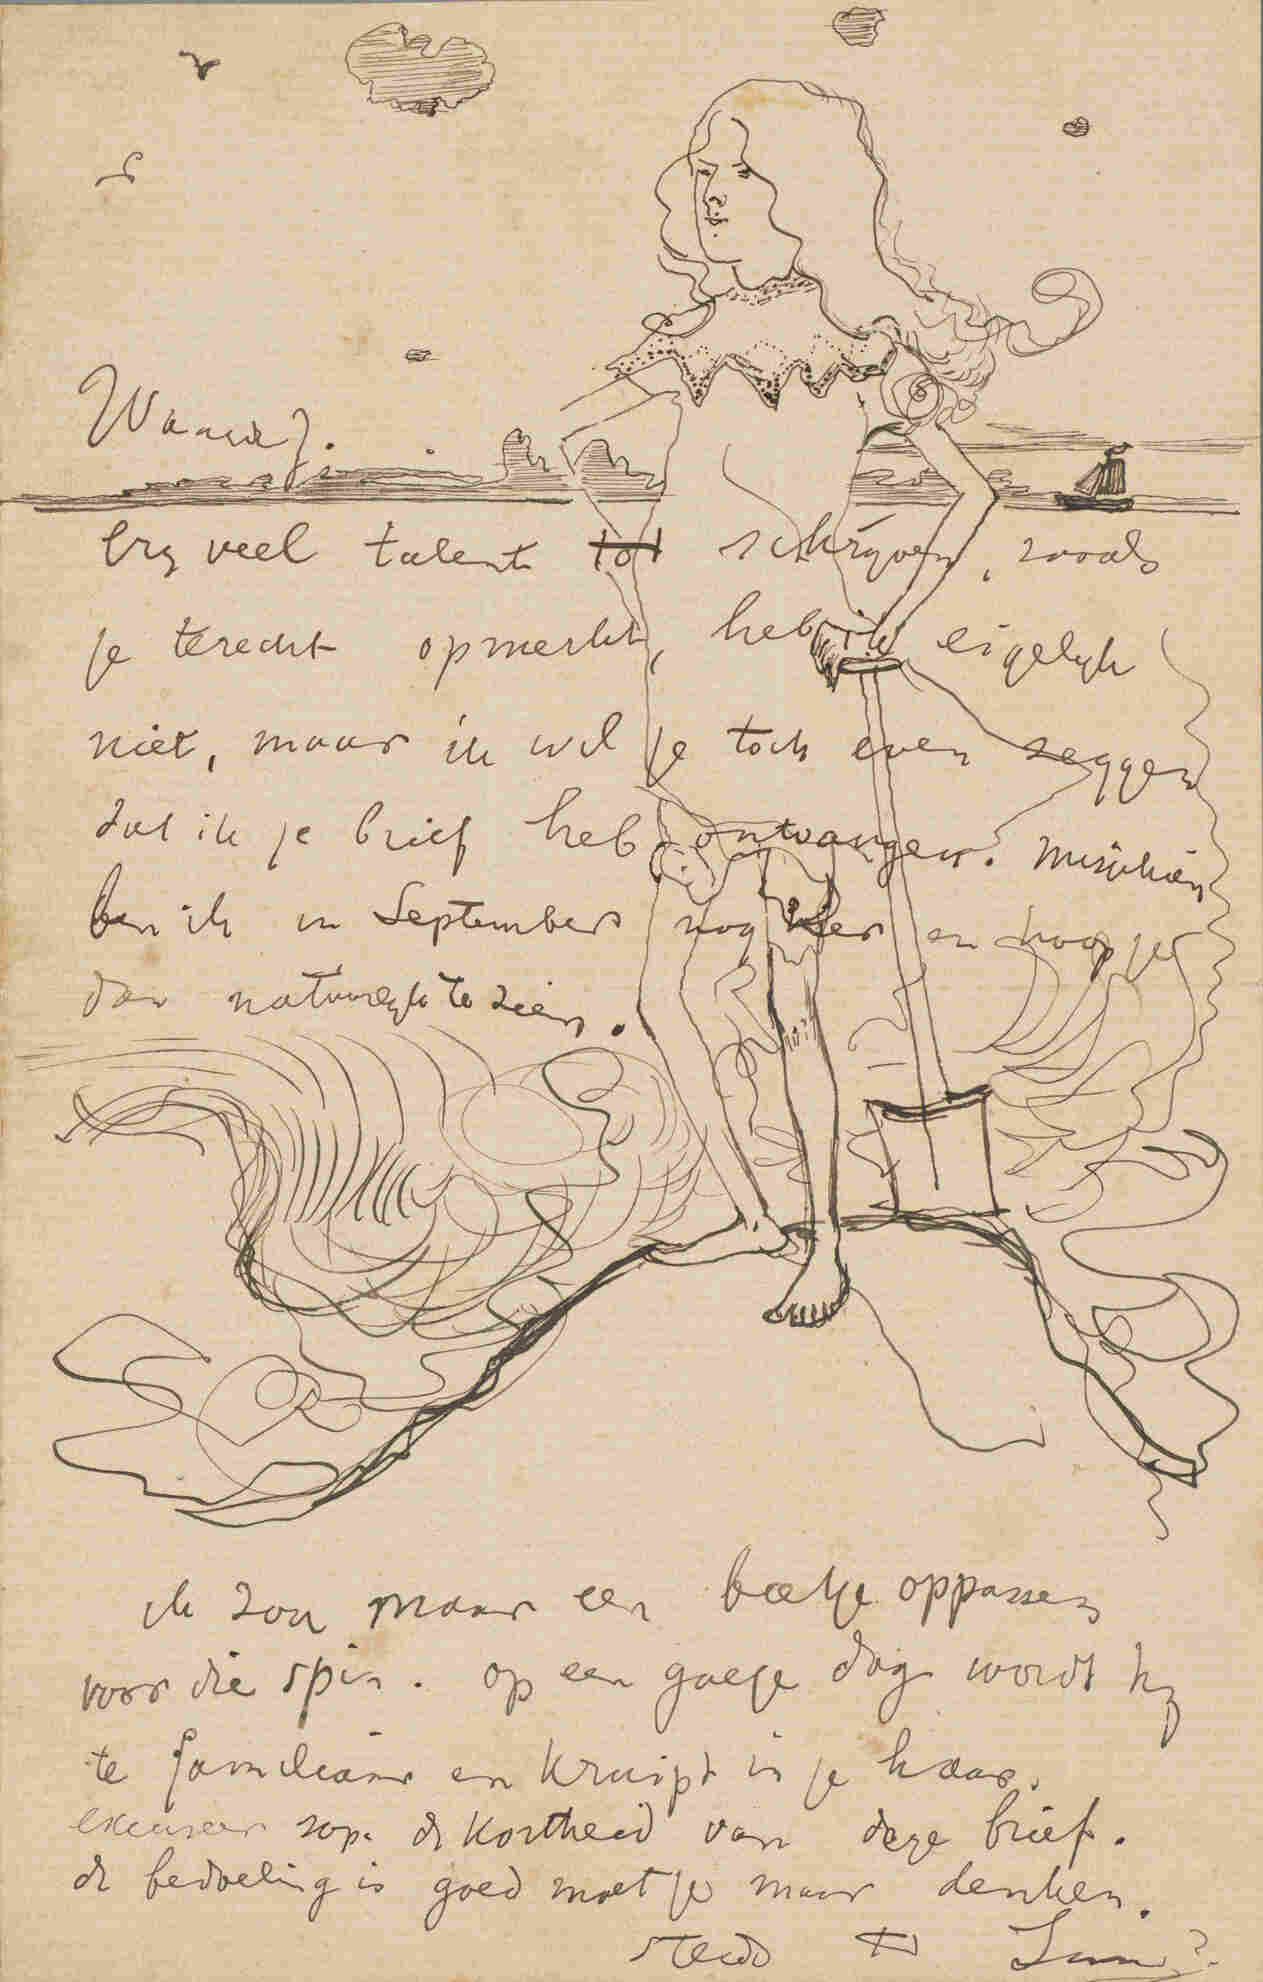 Waarde J.
Erg veel talent tot schrijven, zooals
je terecht opmerkt, heb ik eigelijk
niet, maar ik wil je toch even zeggen
dat ik je brief heb ontvangen. Misschien
ben ik in September nog hier en hoop je
dan natuurlijk te zien.
ik zou maar een beetje oppassen
voor die spin. op een goeje dag wordt hij
te familiaar en kruipt in je haar.
excuseer s.v.p. de kortheid van deze brief.
de bedoeling is goed moet je maar denken.
steeds